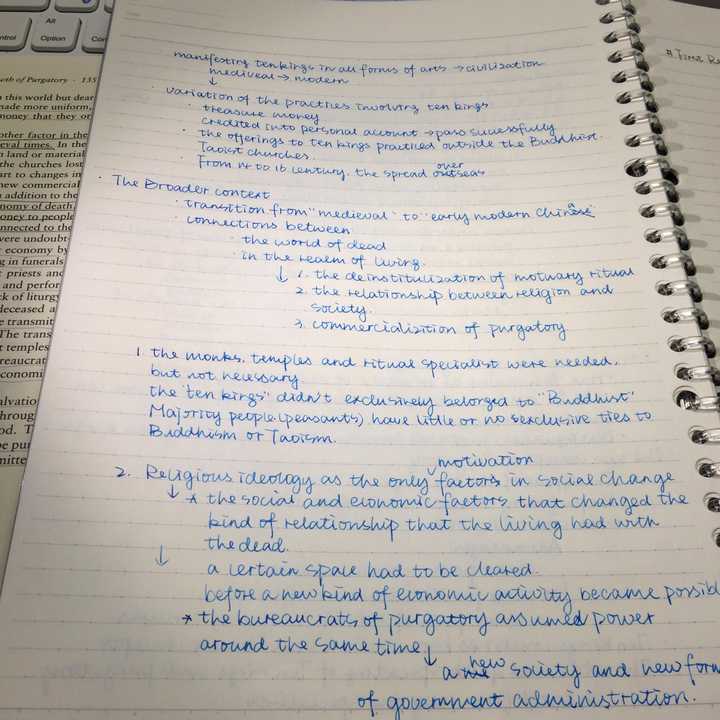 Alt
Option
eth of Purgatory · 135
this world but dear
made more uniform,
money that they or
other factor in the
eval times. In the
land or material
the churches lost
art to changes in
new commercial
addition to the
nomy of death,
oney to people
nnected to the
were undoubt
economy by
g in funerals
priests and
and perfor
ck of liturgy
deceased a
transmit
The trans
temples
reaucrat
conomi
alvatio
hroug
od. T
be pur
mitte
manifesting ten kings in all forms of arts → civilization
mediveal → modern
↓
· variation of the practices involving ten kings
· treasure money
credited into personal account → pass successfully
· the offerings to ten kings practiced outside the Buddhist.
Taoist churches.
· From 14 to 16 century, the spread over
· The Broader context
· transition from "medieval" to "early modern Chinese"
· connections between
· the world of dead
· in the realm of living.
↓ 1. the deinstitulization of motuary ritual
2. the relationship between religion and
society.
3. commercializition of purgatory
1. the monks, temples and ritual specialist were needed,
but not necessary
the "ten kings" didn't exclusively belonged to "Buddhist"
Majority people (peasants) have little or no sexclusive ties to
Buddhism or Taoism.
2. Religious ideology as the only motivation factors in social change
↓ * the social and economic factors that changed the
kind of relationship that the living had with
the dead.
↓ a certain space had to be cleared
before a new kind of economic activity became possib
* the bureaucrats of purgatory assumed power
around the same time ↓
a new society and new form
of government administration.
# Time Re